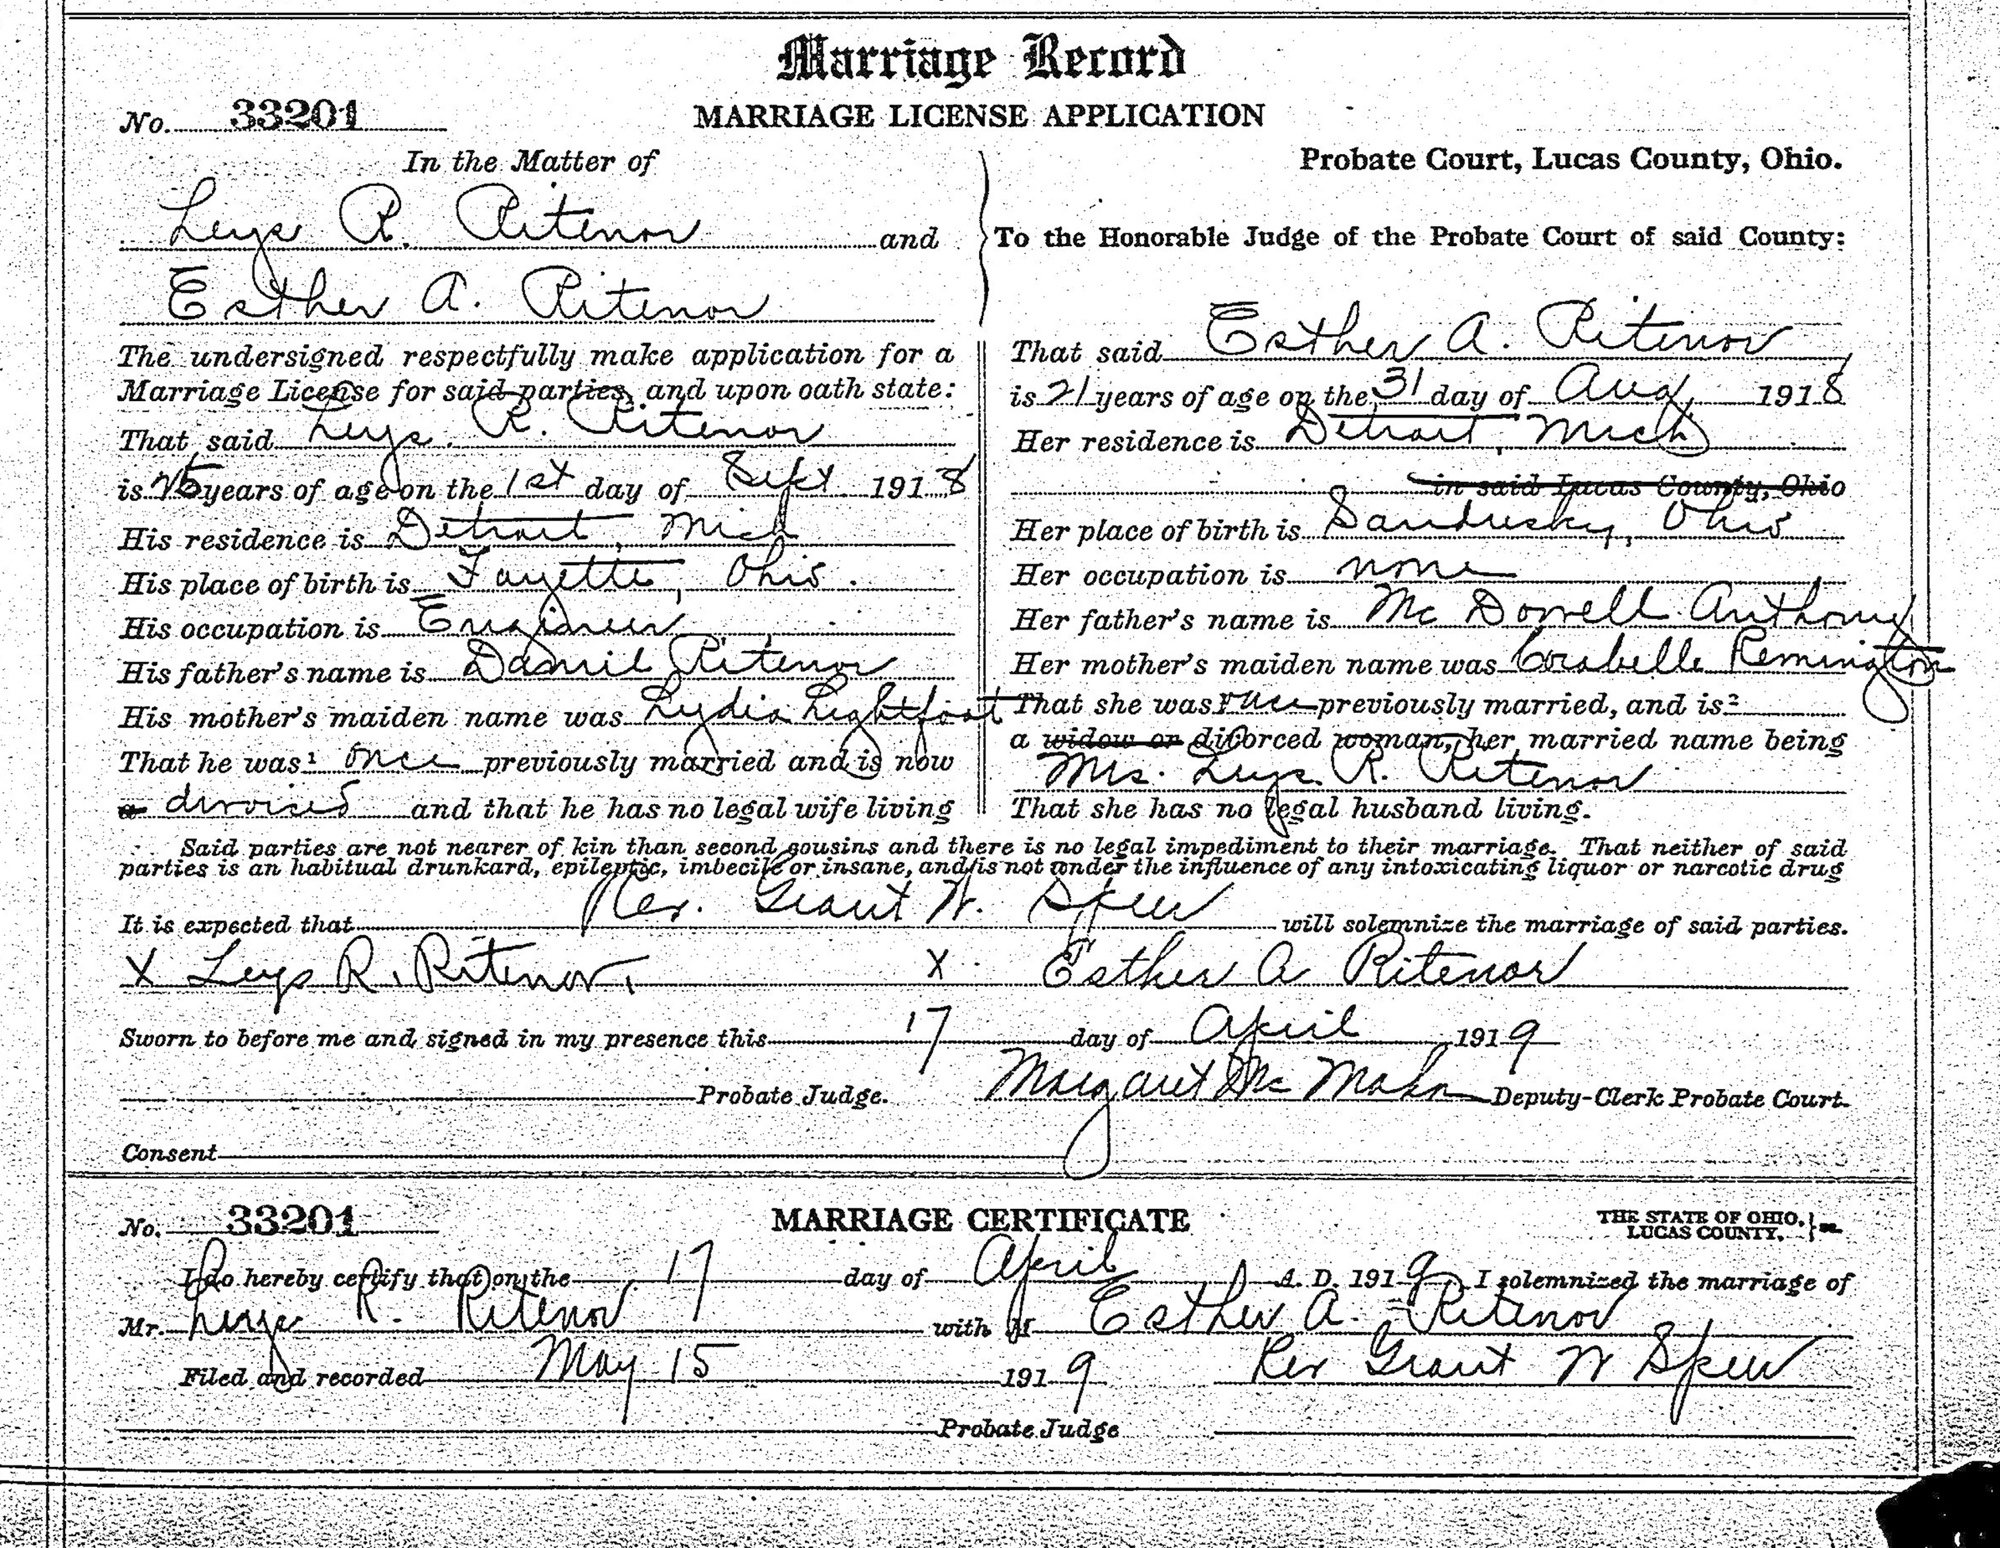 Marriage Record
No. 33201
MARRIAGE LICENSE APPLICATION
In the Matter of
Probate Court, Lucas County, Ohio.
Leys R. Ritenor and
Esther A. Ritenor
To the Honorable Judge of the Probate Court of said County:
The undersigned respectfully make application for a
Marriage License for said parties, and upon oath state:
That said Leys R. Ritenor
is 25 years of age on the 1st day of Sept 1918
His residence is Detroit, Mich
His place of birth is Fayette, Ohio.
His occupation is Engineer
His father's name is Daniel Ritenor
His mother's maiden name was Lydia Lightfoot
That he was¹ once previously married and is now
a divorced and that he has no legal wife living
That said Esther A. Ritenor
is 21 years of age on the 31 day of Aug 1918
Her residence is Detroit, Mich
in said Lucas County, Ohio
Her place of birth is Sandusky, Ohio
Her occupation is none
Her father's name is McDowell Anthony
Her mother's maiden name was Corabelle Remington
That she was once previously married, and is²
a widow or divorced woman, her married name being
Mrs. Leys R. Ritenor
That she has no legal husband living.
Said parties are not nearer of kin than second cousins and there is no legal impediment to their marriage. That neither of said
parties is an habitual drunkard, epileptic, imbecile or insane, and is not under the influence of any intoxicating liquor or narcotic drug
It is expected that Rev. Grant W. Speer will solemnize the marriage of said parties.
X Leys R. Ritenor. X Esther A Ritenor
Sworn to before me and signed in my presence this 17 day of April 1919
Probate Judge. Margaret McMahn Deputy-Clerk Probate Court.
Consent
No. 33201
MARRIAGE CERTIFICATE
THE STATE OF OHIO,
LUCAS COUNTY,
I do hereby certify that on the 17 day of April A. D. 1919 I solemnized the marriage of
Mr. Leys R. Ritenor with M Esther A. Ritenor
Filed and recorded May 15 1919 Rev Grant W Speer
Probate Judge